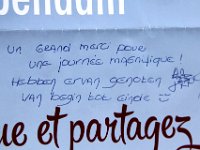 pendant
un Grand merci pour
une journée magnifique!
Hebben ervan genoten
van begin tot einde ☺
ue et partagez